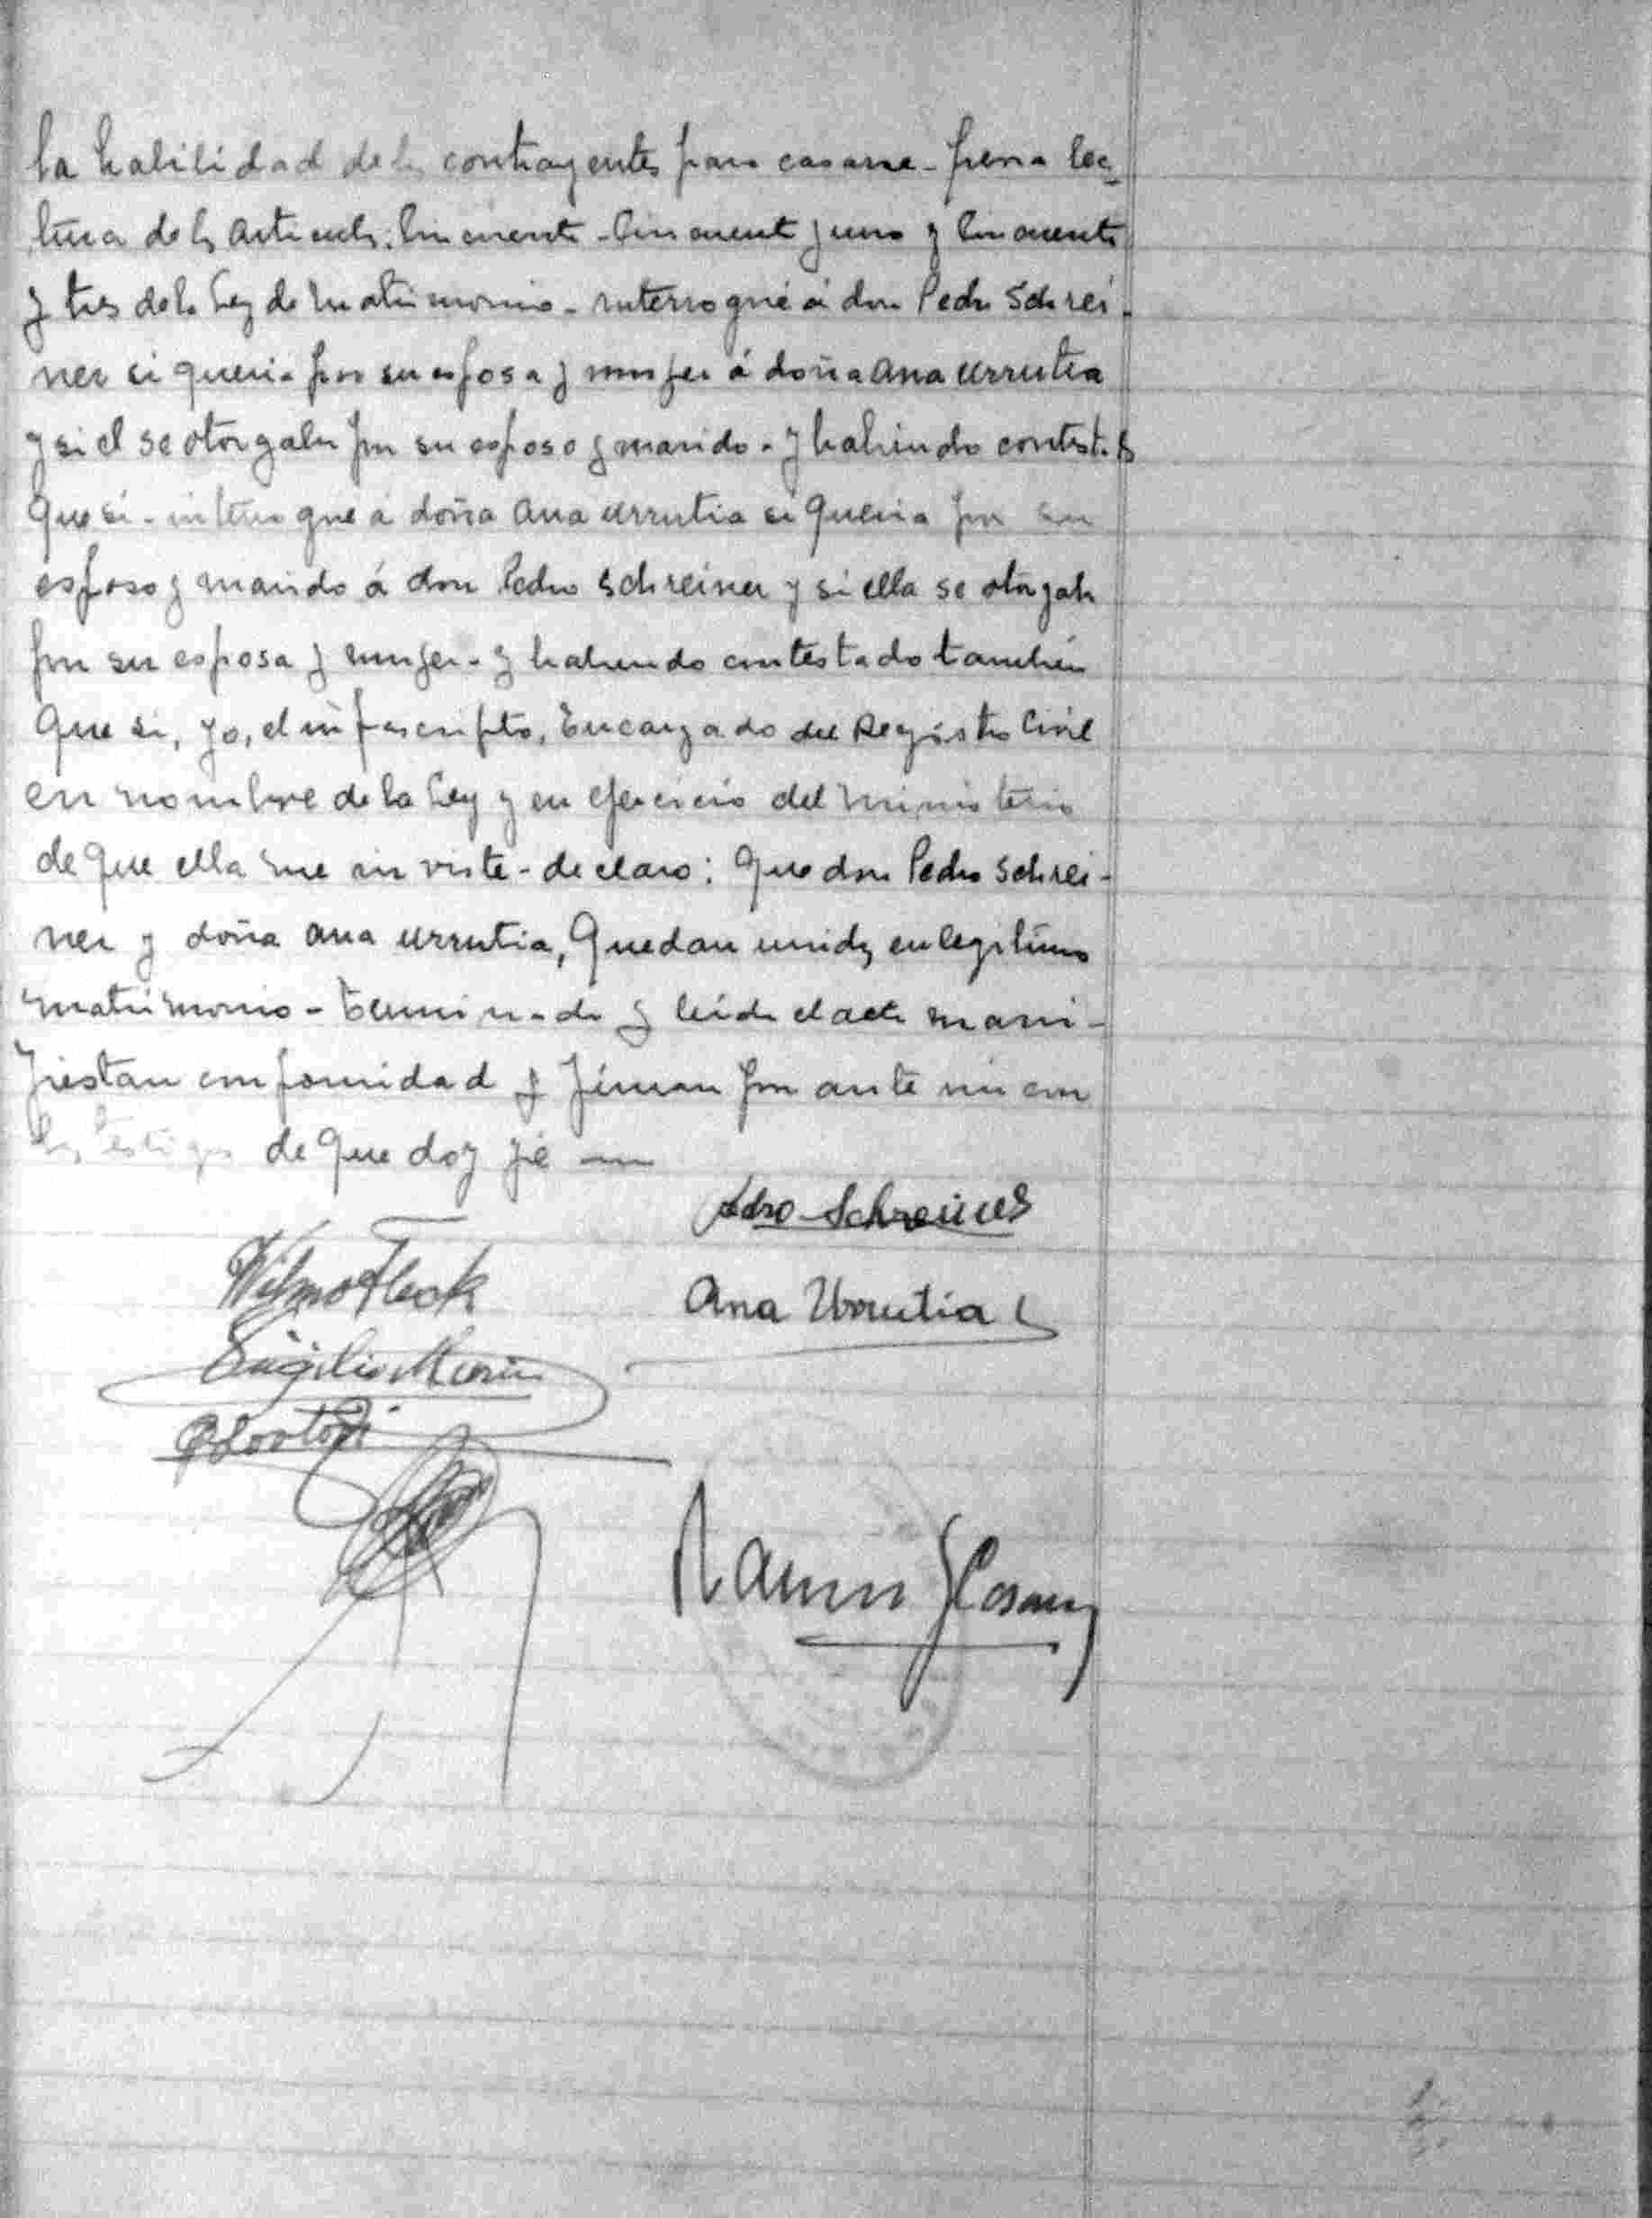 la habilidad de los contrayentes para casarse - previa lec-
tura de los articulos cincuenta - cincuenta y uno y cincuenta
y tres de la Ley de Matrimonio - interrogué á don Pedro Schrei-
ner si queria por su esposa y mujer á doña Ana Urrutia
y si el se otorgaba por su esposo y marido - y habiendo contestado
que si - interrogué a doña Ana Urrutia si queria por su
esposo y marido á don Pedro Schreiner y si ella se otorgaba
por su esposa y mujer - y habiendo contestado también
que si, yo, el infrascripto, Encargado del Registro Civil
en nombre de la Ley y en ejercicio del Ministerio
de que ella me inviste - declaro: que don Pedro Schrei-
ner y doña Ana Urrutia, quedan unidos en legitimo
matrimonio - Terminado y leido el acta mani-
fiestan conformidad y firman por ante mi con
los testigos de que doy fé
Pedro Schreiner
Ana Urrutia
Ramón